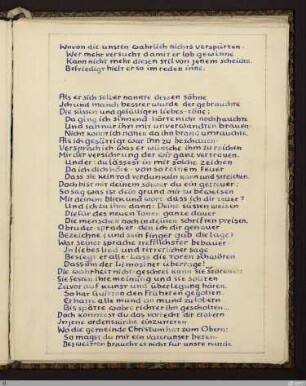 Wovon die unsren wahrlich nichts verspürten.
Wer mehr versucht damit er lob gewinne
Kann nicht mehr diesen stil von jenem scheiden.
Befriedigt hielt er so im reden inne.
Als er sich selber nannte dessen söhne
Ich und manch bessrer wurde der gebrauchte
Die süssen und gefälligen liebes-töne:
Da ging ich sinnend hörte nicht noch hauchte
Und sah nur ihn mit unverwandten brauen
Nicht kommt ich näher da ihn brand umrauchte.
Als ich gesättigt war ihn zu beschauen
Versprach ich was er wünsche ihm zu reichen
Mit der versichrung der wir ganz vertrauen.
Und er: du lässest in mir solche zeichen
Da ich dich höre von so reinem feuer
Dass sie kein tod verdunkeln kann und streichen.
Doch bist mit deinem schwur du ein getreuer
So sag was ist dein grund mir zu beweisen
Mit deinem blick und wort dass ich dir teuer?
Und ich zu ihm dann: Deine süssen weisen
Die für des neuen tones ganze dauer
Die menschen noch in deinen schriften preisen.
O bruder sprach er den ich dir genauer
Bezeichne (und sein finger gab die lage)
War seiner sprache trefflichster bebauer
In liebeslied und ritterlicher sage
Besiegt er alle. Lass die toren schwören
Dass ihn der Limousiner überrage!
Die wahrheit nicht. geschrei kann sie
Sie festen ihre meinung und sie spüren
Zuvor auf kunst und überlegung hören.
So hat Guitton den früheren gegolten
Er hatte alle mund an mund zu loben
Bis spätre wahre richter ihn gescholten...
Doch kommst du das vorrecht dir erobern
In jene ordensärche einzutreten
Wo die gemeinde Christum hat zum Obern:
So magst du mir ein vaterunser beten
Des weitren braucht es nicht für unsre runde